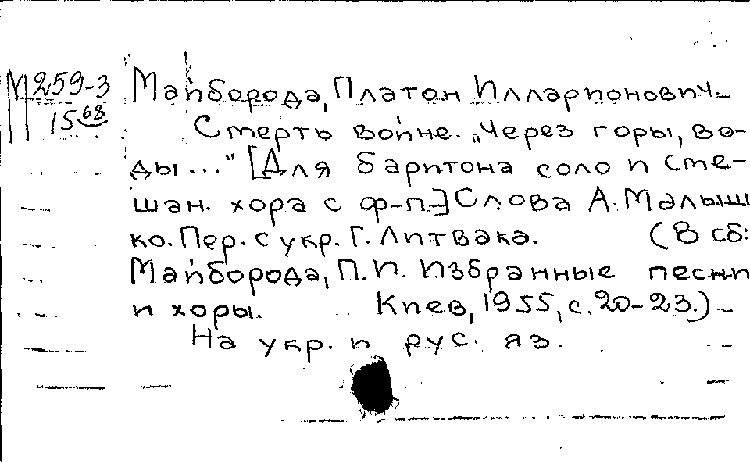 М259-3
15 68
Майборода, Платон Илларионович.
Смерть войне. „Через горы, во-
ды..." [Для баритона соло и сме-
шан. хора с ф-п.] Слова А. Малыш
ко. Пер. с укр. Г. Литвака. (В сб:
Майборода, П.И. Избранные песни
и хоры. Киев, 1955, с. 20-23.)
На укр. и рус. яз.